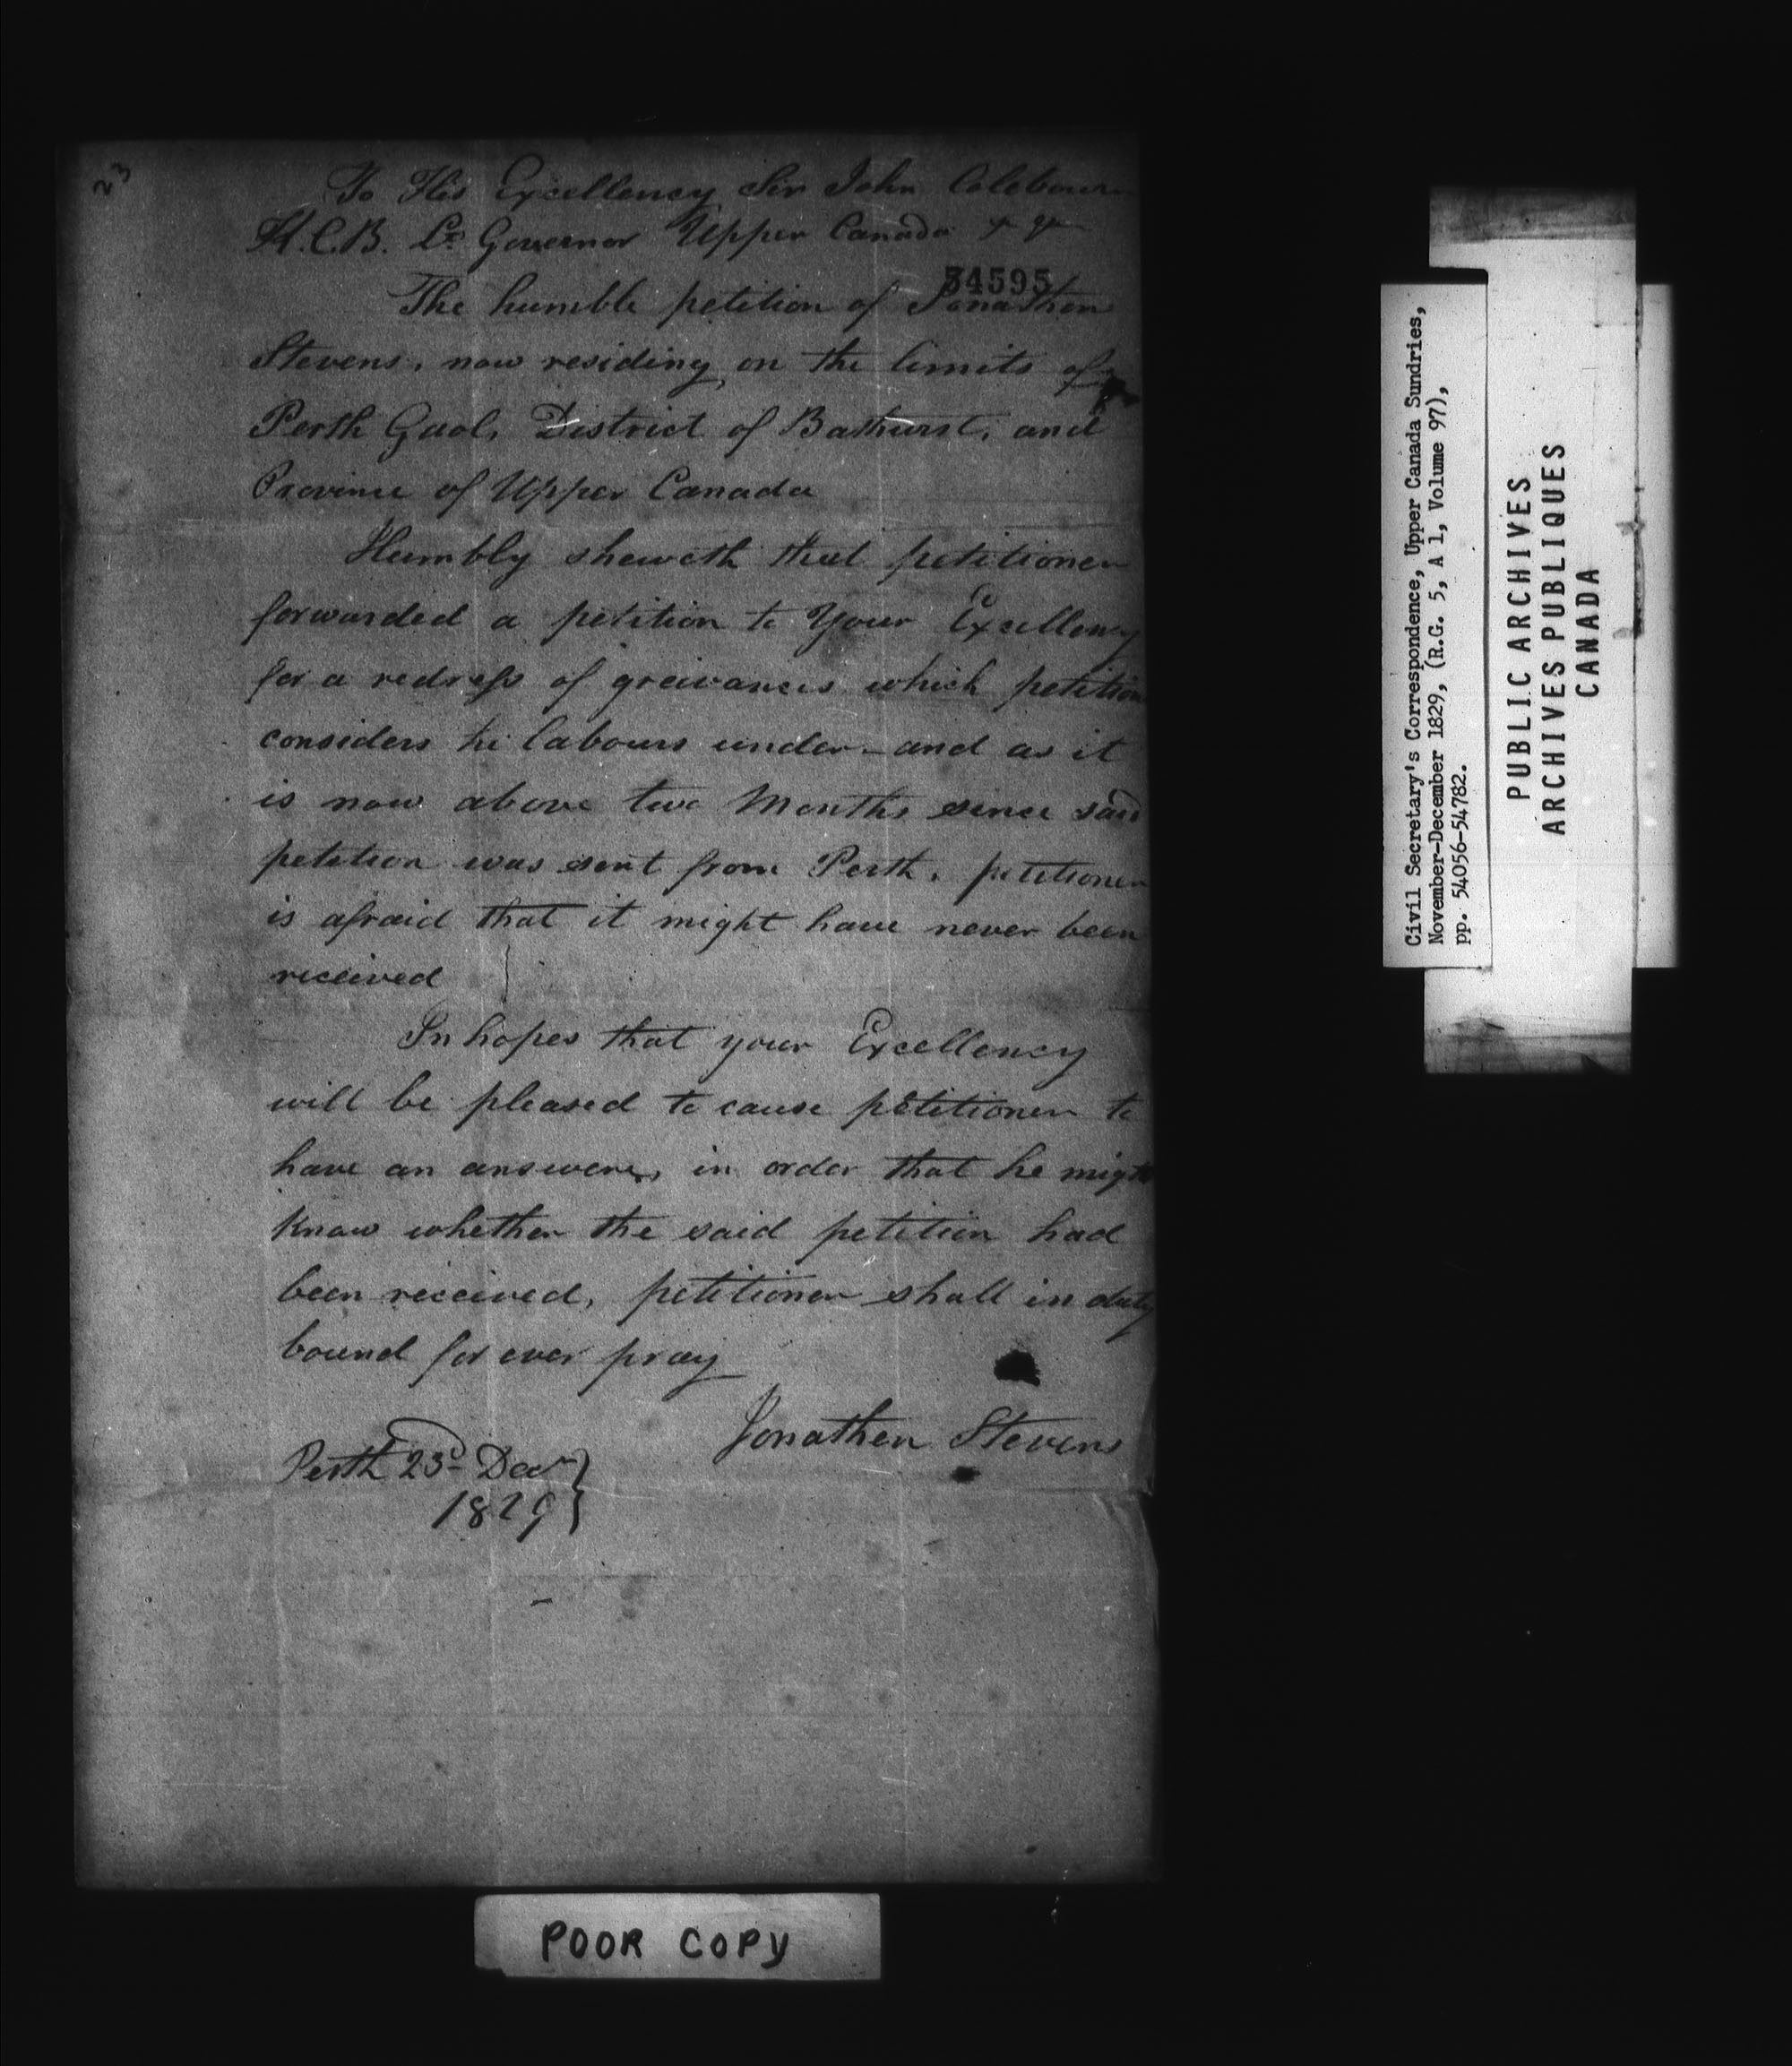 23
To His Excellency Sir John Colebourn
K.C.B. Lt Governor Upper Canada &c &c
54595
The humble petition of Jonathon
Stevens, now residing on the limits of
Perth Gaol, District of Bathurst, and
Province of Upper Canada
Humbly sheweth that petitioner
forwarded a petition to Your Excellency
for a redress of greivances which petition
considers he labours under - and as it
is now above two Months since said
petition was sent from Perth, petitioner
is afraid that it might have never been
received
In hopes that your Excellency
will be pleased to cause petitioner to
have an answere, in order that he might
know whether the said petition had
been received, petitioner shall in duty
bound for ever pray
Jonathen Stevens
Perth 23d Decr
1829
POOR COPY
Civil Secretary's Correspondence, Upper Canada Sundries,
November-December 1829, (R.G. 5, A 1, Volume 97),
pp. 54056-54782.
PUBLIC ARCHIVES
ARCHIVES PUBLIQUES
CANADA